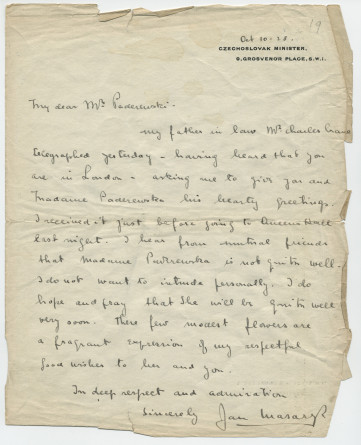 19
Oct 10-25.
CZECHOSLOVAK MINISTER,
9, GROSVENOR PLACE, S.W.1.
My dear Mr Paderewski -
my father in law Mr Charles Crane
telegraphed yesterday - having heard that you
are in London - asking me to give you and
Madame Paderewska his hearty greetings.
I received it just before going to Queens Hall
last night. I hear from mutual friends
that Madame Paderewska is not quite well.
I do not want to intrude personally. I do
hope and pray that she will be quite well
very soon. These few modest flowers are
a fragrant expression of my respectful
good wishes to her and you.
In deep respect and admiration
Sincerely Jan Masaryk